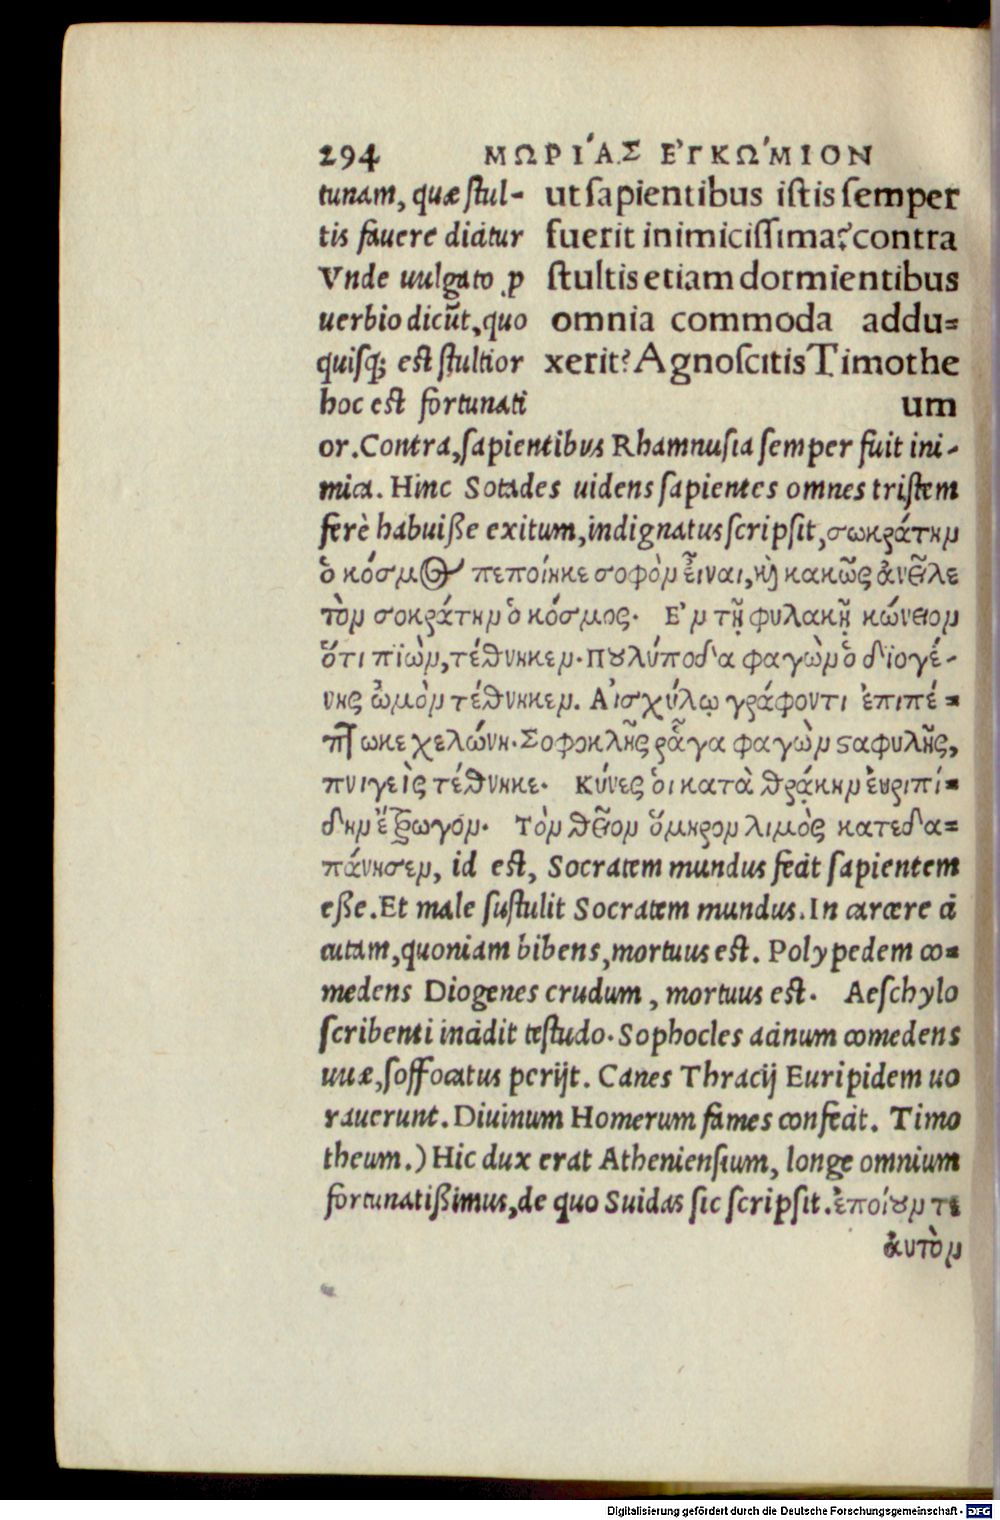 294 ΜΩΡΙ´ΑΣ ΕʼΓΚΩ´ΜΙΟΝ
ut sapientibus istis semper
fuerit inimicissima? contra
stultis etiam dormientibus
omnia commoda addu=
xerit? Agnoscitis Timothe
um
tunam, quæ stul-
tis fauere dicitur
Vnde uulgato ꝓ
uerbio dicūt, quo
quisq; est stultior
hoc est fortunati
or. Contra, sapientibus Rhamnusia semper fuit ini-
mica. Hinc Sotades uidens sapientes omnes tristem
ferè habuiße exitum, indignatus scripsit, σωκράτην
ὁ κόσμος πεποίηκε σοφὸν εἶναι, καὶ κακῶς ἀνεῖλε
τὸν σοκράτην ὁ κόσμος. Εʼν τῇ φυλακῇ κώνειον
ὅτι πιὼν, τέθνηκεν. Πουλύποδα φαγὼν ὁ διογέ-
νης ὠμὸν τέθνηκεν. Αἰσχύλῳ γράφοντι ἐπιπέ=
πτωκε χελώνη. Σοφοκλῆς ῥᾶγα φαγὼν ςαφυλῆς,
πνιγεὶς τέθνηκε. Κύνες ὁι κατὰ θράκην ἐυριπί=
δην ἔτρωγον. Τὸν θεῖον ὅμηρον λιμὸς κατεδα=
πάνησεν, id est, Socratem mundus fecit sapientem
eße. Et male sustulit Socratem mundus. In carcere ci
cutam, quoniam bibens, mortuus est. Polypedem co=
medens Diogenes crudum, mortuus est. Aeschylo
scribenti incidit testudo. Sophocles acinum comedens
uuæ, soffocatus perijt. Canes Thracij Euripidem uo
rauerunt. Diuinum Homerum fames confecit. Timo
theum.) Hic dux erat Atheniensium, longe omnium
fortunatißimus, de quo Suidas sic scripsit. ἐποίουν τε
ἀυτὸν
Digitalisierung gefördert durch die Deutsche Forschungsgemeinschaft - DFG